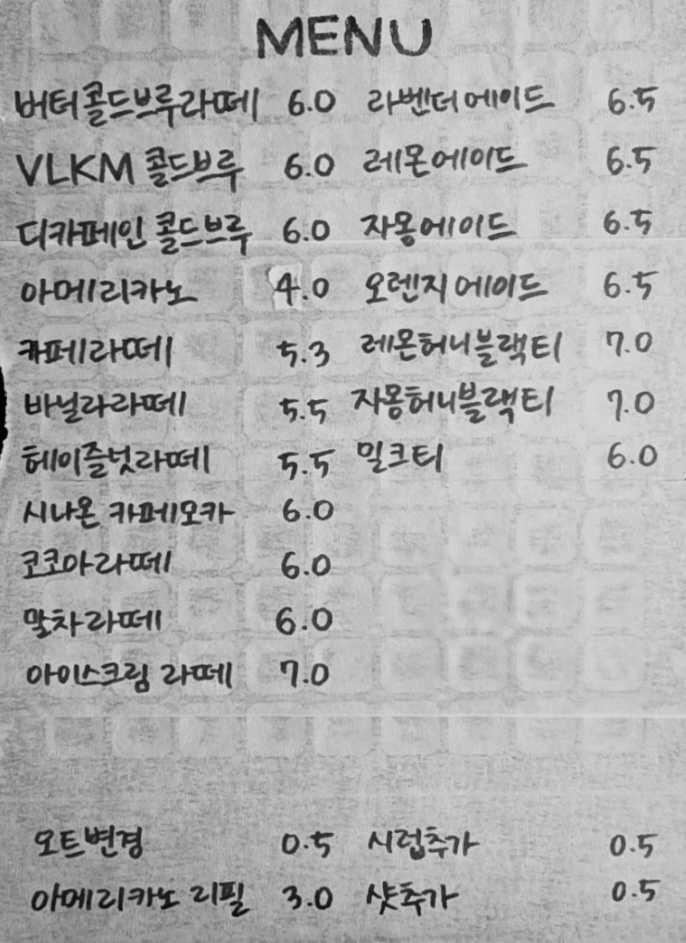 MENU
버터콜드브루라떼 6.0 라벤더에이드 6.5
VLKM 콜드브루 6.0 레몬에이드 6.5
디카페인 콜드브루 6.0 자몽에이드 6.5
아메리카노 4.0 오렌지에이드 6.5
카페라떼 5.3 레몬허니블랙티 7.0
바닐라라떼 5.5 자몽허니블랙티 7.0
헤이즐넛라떼 5.5 밀크티 6.0
시나몬 카페모카 6.0
코코아라떼 6.0
말차라떼 6.0
아이스크림 라떼 7.0
오트변경 0.5 시럽추가 0.5
아메리카노 리필 3.0 샷추가 0.5